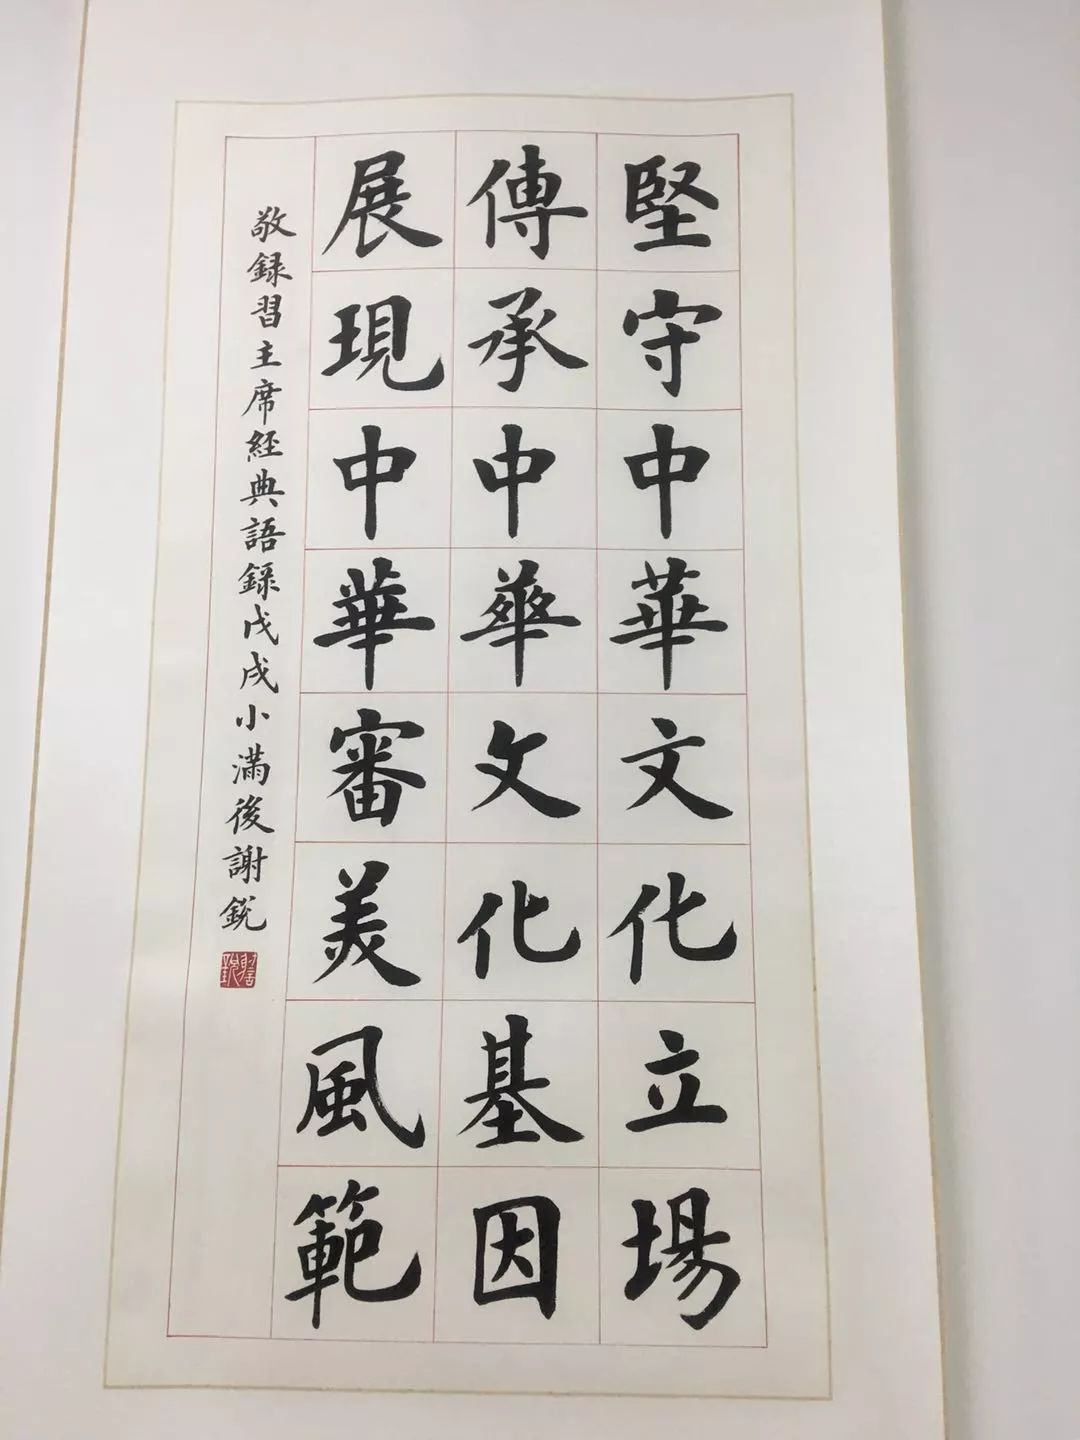 堅守中華文化立場
傳承中華文化基因
展現中華審美風範
敬録習主席經典語録戊戌小滿後謝鋭